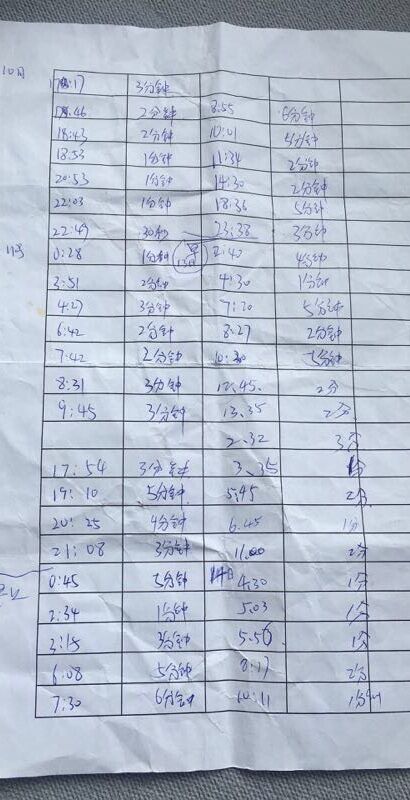 10月
:17 3分钟
18:46 2分钟 8:55 6分钟
18:43 2分钟 10:01 4分钟
18:53 1分钟 11:34 2分钟
20:53 1分钟 14:30 2分钟
22:03 1分钟 18:36 5分钟
22:49 30秒 23:38 3分钟
11号 0:28 1分钟 早 13日 2:40 4分钟
3:51 2分钟 4:30 1分钟
4:27 3分钟 7:20 5分钟
6:42 2分钟 8:27 2分钟
7:42 2分钟 10:30 3分钟
8:31 3分钟 12.45. 2分
9:45 3分钟 13.35 2分
2.32 3分
17:54 3分钟 3.35 分
19:10 5分钟 5:45 2分
20:25 4分钟 6.45 1分
21:08 3分钟 11.00 2分
0:45 5分钟 14日 4.30 1分
2:34 1分钟 5.03 1分
3:15 3分钟 5.56. 1分
6:08 5分钟 8:17 2分
7:30 6分钟 10:11 1分钟